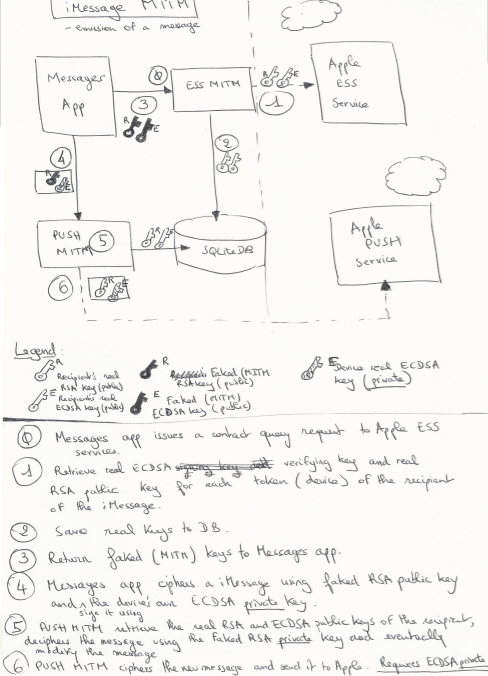 iMessage MITM
- emission of a message
Messages
App
0
3
R
E
ESS MITM
R E
1
Apple
ESS
Service
2
4
R
E
PUSH
MITM
5
R E
SQLiteDB
6
R
E
Apple
PUSH
Service
Legend:
R
Recipient's real
RSA key (public)
E
Recipient's real
ECDSA key (public)
R
Faked (MITM)
RSA key (public)
E
Faked (MITM)
ECDSA key (public)
E Device real ECDSA
key (private)
0 Messages app issues a contact query request to Apple ESS
services.
1 Retrieve real ECDSA signing key and verifying key and real
RSA public key for each token (device) of the recipient
of the iMessage.
2 Save real Keys to DB.
3 Return faked (MITM) keys to Messages app.
4 Messages app ciphers a iMessage using faked RSA public key
and sign it using the device's own ECDSA private key.
5 PUSH MITM retrieve the real RSA and ECDSA public keys of the recipient,
deciphers the message using the Faked RSA private key and eventually
modify the message
6 PUSH MITM ciphers the new message and send it to Apple. Requires ECDSA private